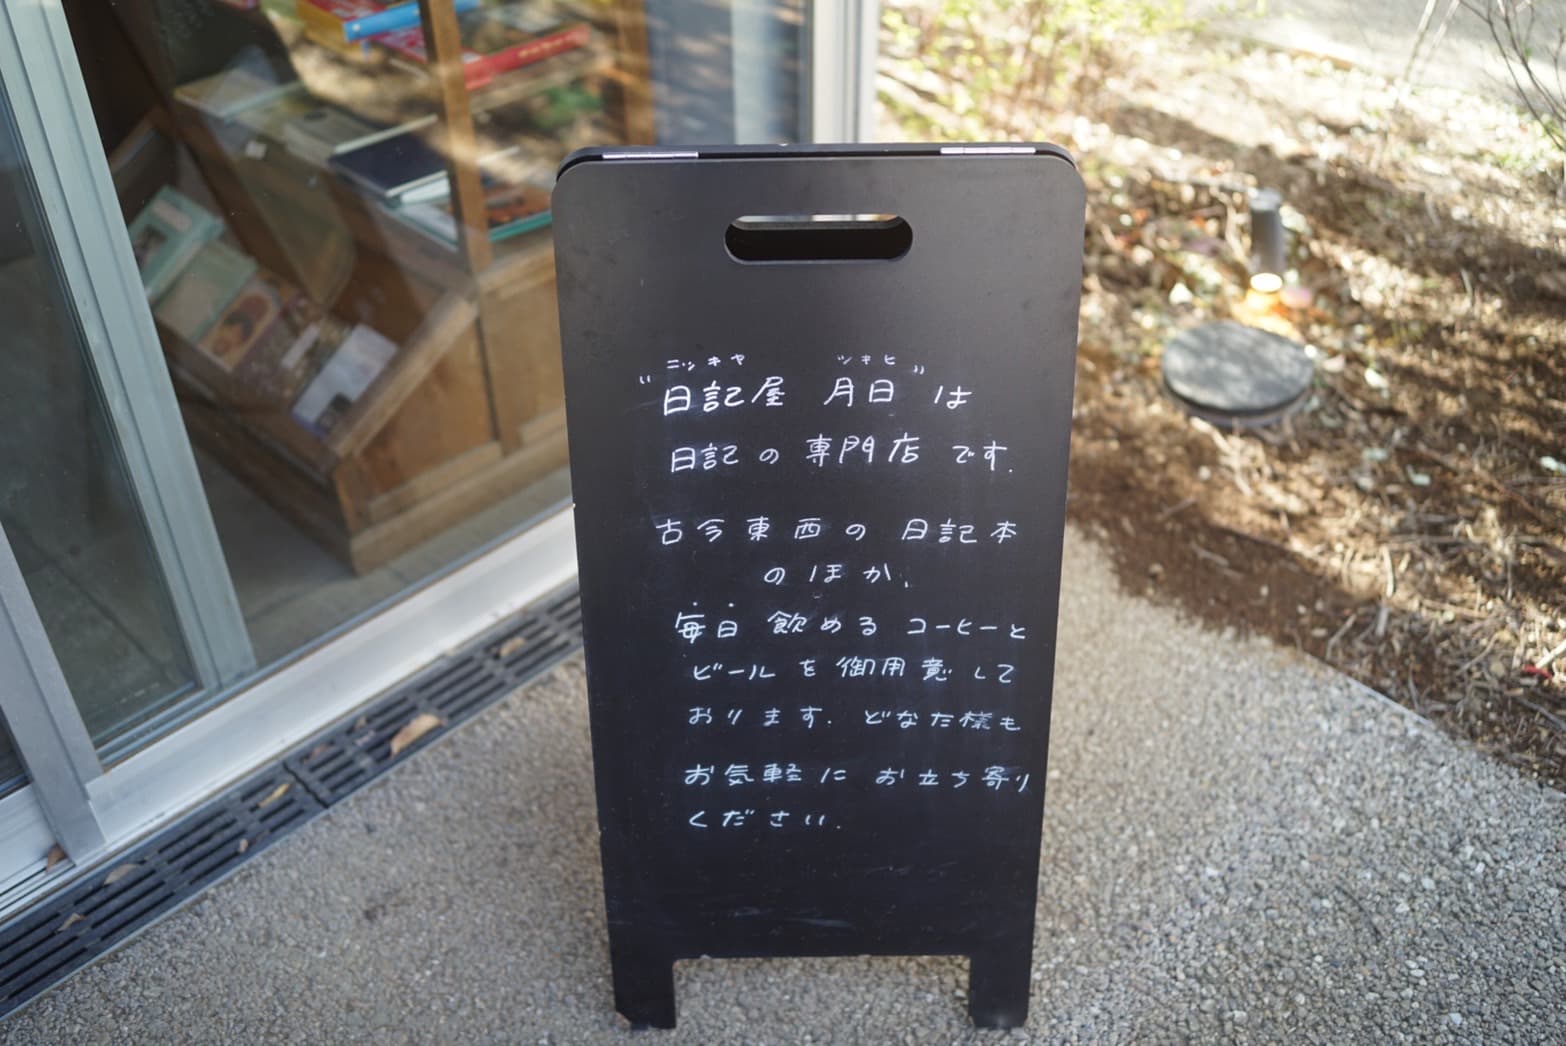 ニッキヤ ツキヒ
"日記屋 月日"は
日記の専門店です.
古今東西の日記本
のほか、
毎日飲めるコーヒーと
ビールを御用意して
おります. どなた様も
お気軽にお立ち寄り
ください.